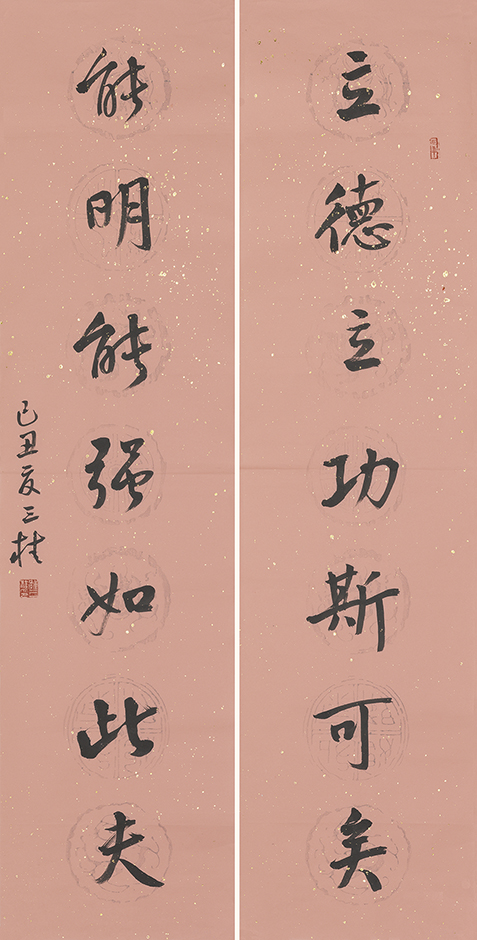 立德立功斯可矣
能明能强如此夫
己丑夏三桂